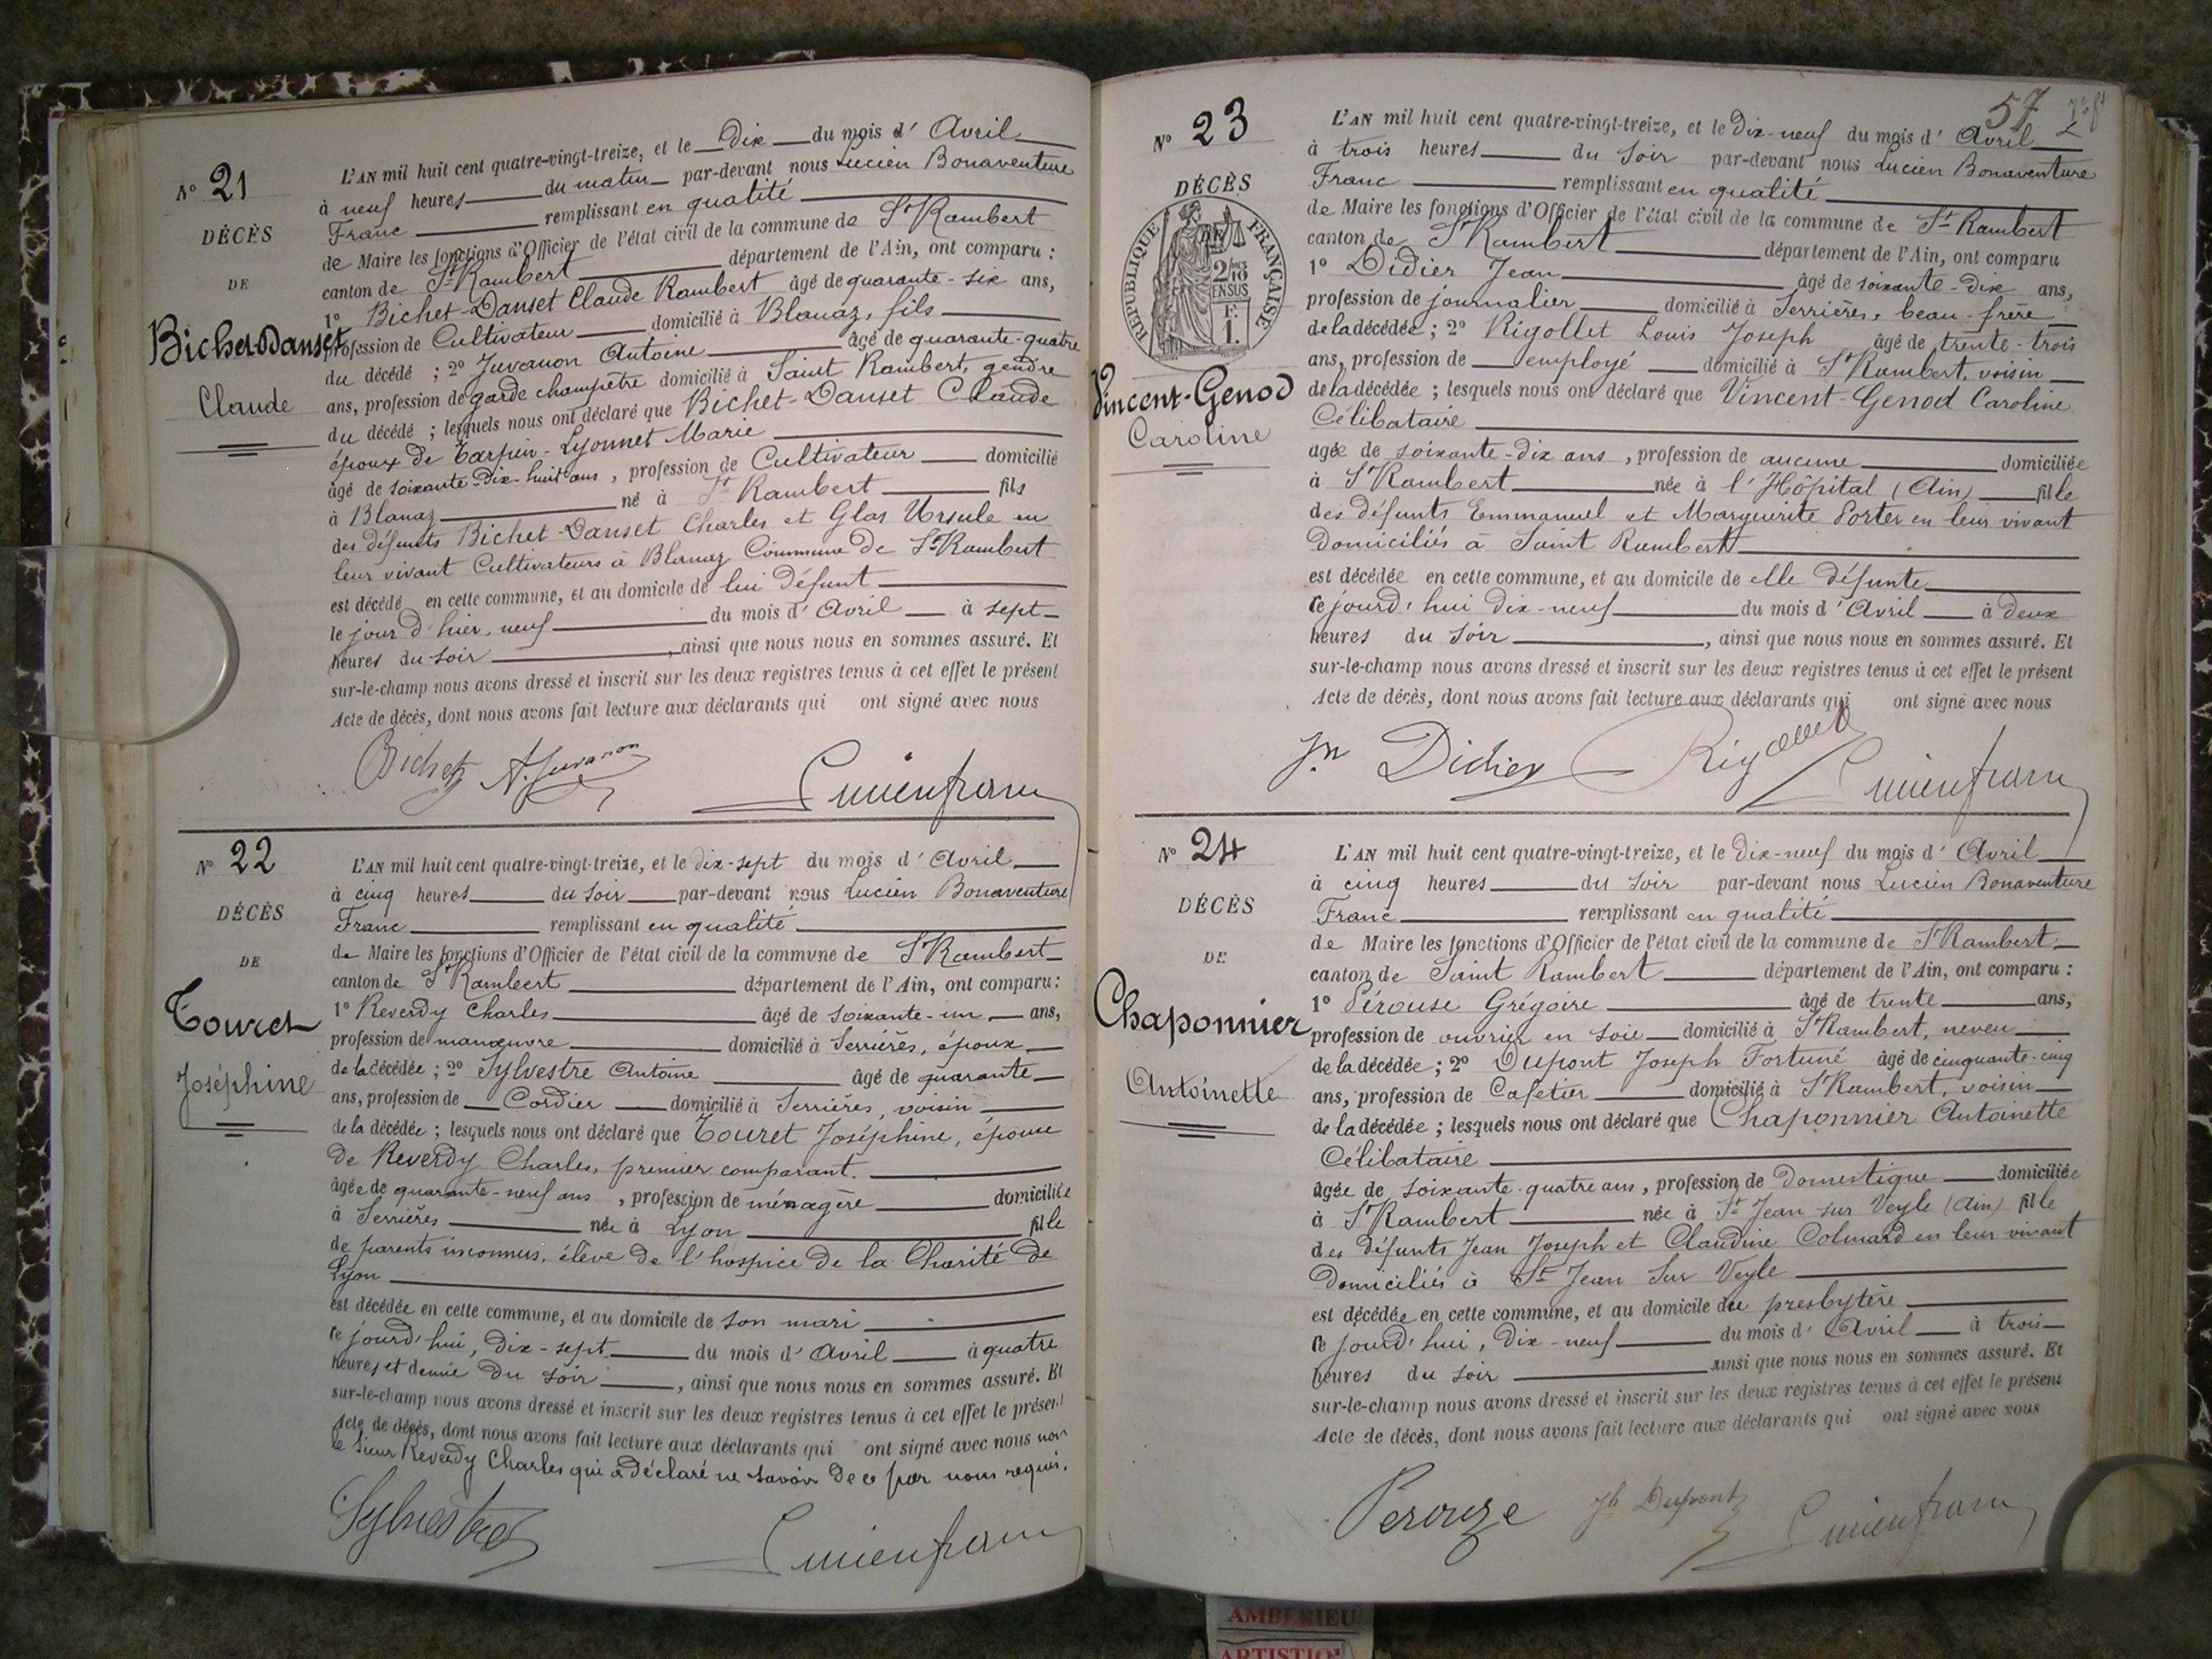 N° 21
DÉCÈS
DE
Bichet-Danset
Claude
L'AN mil huit cent quatre-vingt-treize, et le Dix du mois d' Avril
à neuf heures du matin par-devant nous Lucien Bonaventure
Franc remplissant en qualité
de Maire les fonctions d'Officier de l'état civil de la commune de St Rambert
canton de St Rambert département de l'Ain, ont comparu :
1° Bichet-Danset Claude Rambert âgé de quarante-six ans,
profession de Cultivateur domicilié à Blanaz, fils
du décédé ; 2° Juvanon Antoine âgé de quarante-quatre
ans, profession de garde champêtre domicilié à Saint Rambert, gendre
du décédé ; lesquels nous ont déclaré que Bichet-Danset Claude
époux de Tarpin-Lyonnet Marie
âgé de soixante-dix-huit ans, profession de Cultivateur domicilié
à Blanaz né à St Rambert fils
des défunts Bichet-Danset Charles et Glas Ursule en
leur vivant Cultivateurs à Blanaz Commune de St Rambert
est décédé en cette commune, et au domicile de lui défunt
le jour d'hier, neuf du mois d'Avril à sept
heures du soir, ainsi que nous nous en sommes assuré. Et
sur-le-champ nous avons dressé et inscrit sur les deux registres tenus à cet effet le présent
Acte de décès, dont nous avons fait lecture aux déclarants qui ont signé avec nous
Bichet A. Juvanon Lucien franc
N° 22
DÉCÈS
DE
Touret
Joséphine
L'AN mil huit cent quatre-vingt-treize, et le dix-sept du mois d' Avril
à cinq heures du soir par-devant nous Lucien Bonaventure
Franc remplissant en qualité
de Maire les fonctions d'Officier de l'état civil de la commune de St Rambert
canton de St Rambert département de l'Ain, ont comparu :
1° Reverdy Charles âgé de soixante-un ans,
profession de manœuvre domicilié à Serrières, époux
de la décédée ; 2° Sylvestre Antoine âgé de quarante
ans, profession de Cordier domicilié à Serrières, voisin
de la décédée ; lesquels nous ont déclaré que Touret Joséphine, épouse
de Reverdy Charles, premier comparant.
âgée de quarante-neuf ans, profession de ménagère domiciliée
à Serrières née à Lyon fille
de parents inconnus, élève de l'hospice de la Charité de
Lyon
est décédée en cette commune, et au domicile de son mari
ce jourd'hui, dix-sept du mois d' Avril à quatre
heures et demie du soir, ainsi que nous nous en sommes assuré. Et
sur-le-champ nous avons dressé et inscrit sur les deux registres tenus à cet effet le présent
Acte de décès, dont nous avons fait lecture aux déclarants qui ont signé avec nous non
le sieur Reverdy Charles qui a déclaré ne savoir de ce par nous requis.
Sylvestre Lucien franc
57
N° 23
DÉCÈS
RÉPUBLIQUE FRANÇAISE
2/10 EN SUS
F. 1.
Vincent-Genod
Caroline
L'AN mil huit cent quatre-vingt-treize, et le Dix-neuf du mois d' Avril
à trois heures du soir par-devant nous Lucien Bonaventure
Franc remplissant en qualité
de Maire les fonctions d'Officier de l'état civil de la commune de St Rambert
canton de St Rambert département de l'Ain, ont comparu
1° Didier Jean âgé de soixante-dix ans,
profession de journalier domicilié à Serrières, beau-frère
de la décédée ; 2° Rigollet Louis Joseph âgé de trente-trois
ans, profession de employé domicilié à St Rambert, voisin
de la décédée ; lesquels nous ont déclaré que Vincent-Genod Caroline
Célibataire
âgée de soixante-dix ans, profession de aucune domiciliée
à St Rambert née à l'Hôpital (Ain) fille
des défunts Emmanuel et Marguerite Porter en leur vivant
domiciliés à Saint Rambert
est décédée en cette commune, et au domicile de elle défunte
ce jourd'hui dix-neuf du mois d'Avril à deux
heures du soir, ainsi que nous nous en sommes assuré. Et
sur-le-champ nous avons dressé et inscrit sur les deux registres tenus à cet effet le présent
Acte de décès, dont nous avons fait lecture aux déclarants qui ont signé avec nous
Jn Didier Rigollet Lucien franc
N° 24
DÉCÈS
DE
Chaponnier
Antoinette
L'AN mil huit cent quatre-vingt-treize, et le Dix-neuf du mois d' Avril
à cinq heures du soir par-devant nous Lucien Bonaventure
Franc remplissant en qualité
de Maire les fonctions d'Officier de l'état civil de la commune de St Rambert
canton de Saint Rambert département de l'Ain, ont comparu :
1° Pérouse Grégoire âgé de trente ans,
profession de ouvrier en soie domicilié à St Rambert, neveu
de la décédée ; 2° Dupont Joseph Fortuné âgé de cinquante-cinq
ans, profession de Cafetier domicilié à St Rambert, voisin
de la décédée ; lesquels nous ont déclaré que Chaponnier Antoinette
Célibataire
âgée de soixante-quatre ans, profession de Domestique domiciliée
à St Rambert née à St Jean sur Veyle (Ain) fille
des défunts Jean Joseph et Claudine Colmard en leur vivant
Domiciliés à St Jean Sur Veyle
est décédée en cette commune, et au domicile du presbytère
ce jourd'hui, dix-neuf du mois d' Avril à trois
heures du soir ainsi que nous nous en sommes assuré. Et
sur-le-champ nous avons dressé et inscrit sur les deux registres tenus à cet effet le présent
Acte de décès, dont nous avons fait lecture aux déclarants qui ont signé avec nous
Perouze Jh Dupont Lucien franc
AMBERIEU